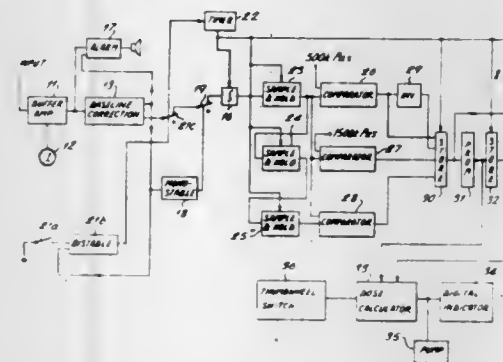 TIMER
22
17
ALARM
INPUT
11
BUFFER AMP
13
BASELINE CORRECTION
12
21c
19
16
MONO-STABLE
18
21a
21b
BISTABLE
23
SAMPLE & HOLD
24
SAMPLE & HOLD
25
SAMPLE & HOLD
26
COMPARATOR
1500
27
COMPARATOR
28
COMPARATOR
29
INV
STORE
30
PROM
31
STORE
32
36
THUMBWHEEL SWITCH
33
DOSE CALCULATOR
34
DIGITAL INDICATOR
PUMP
35